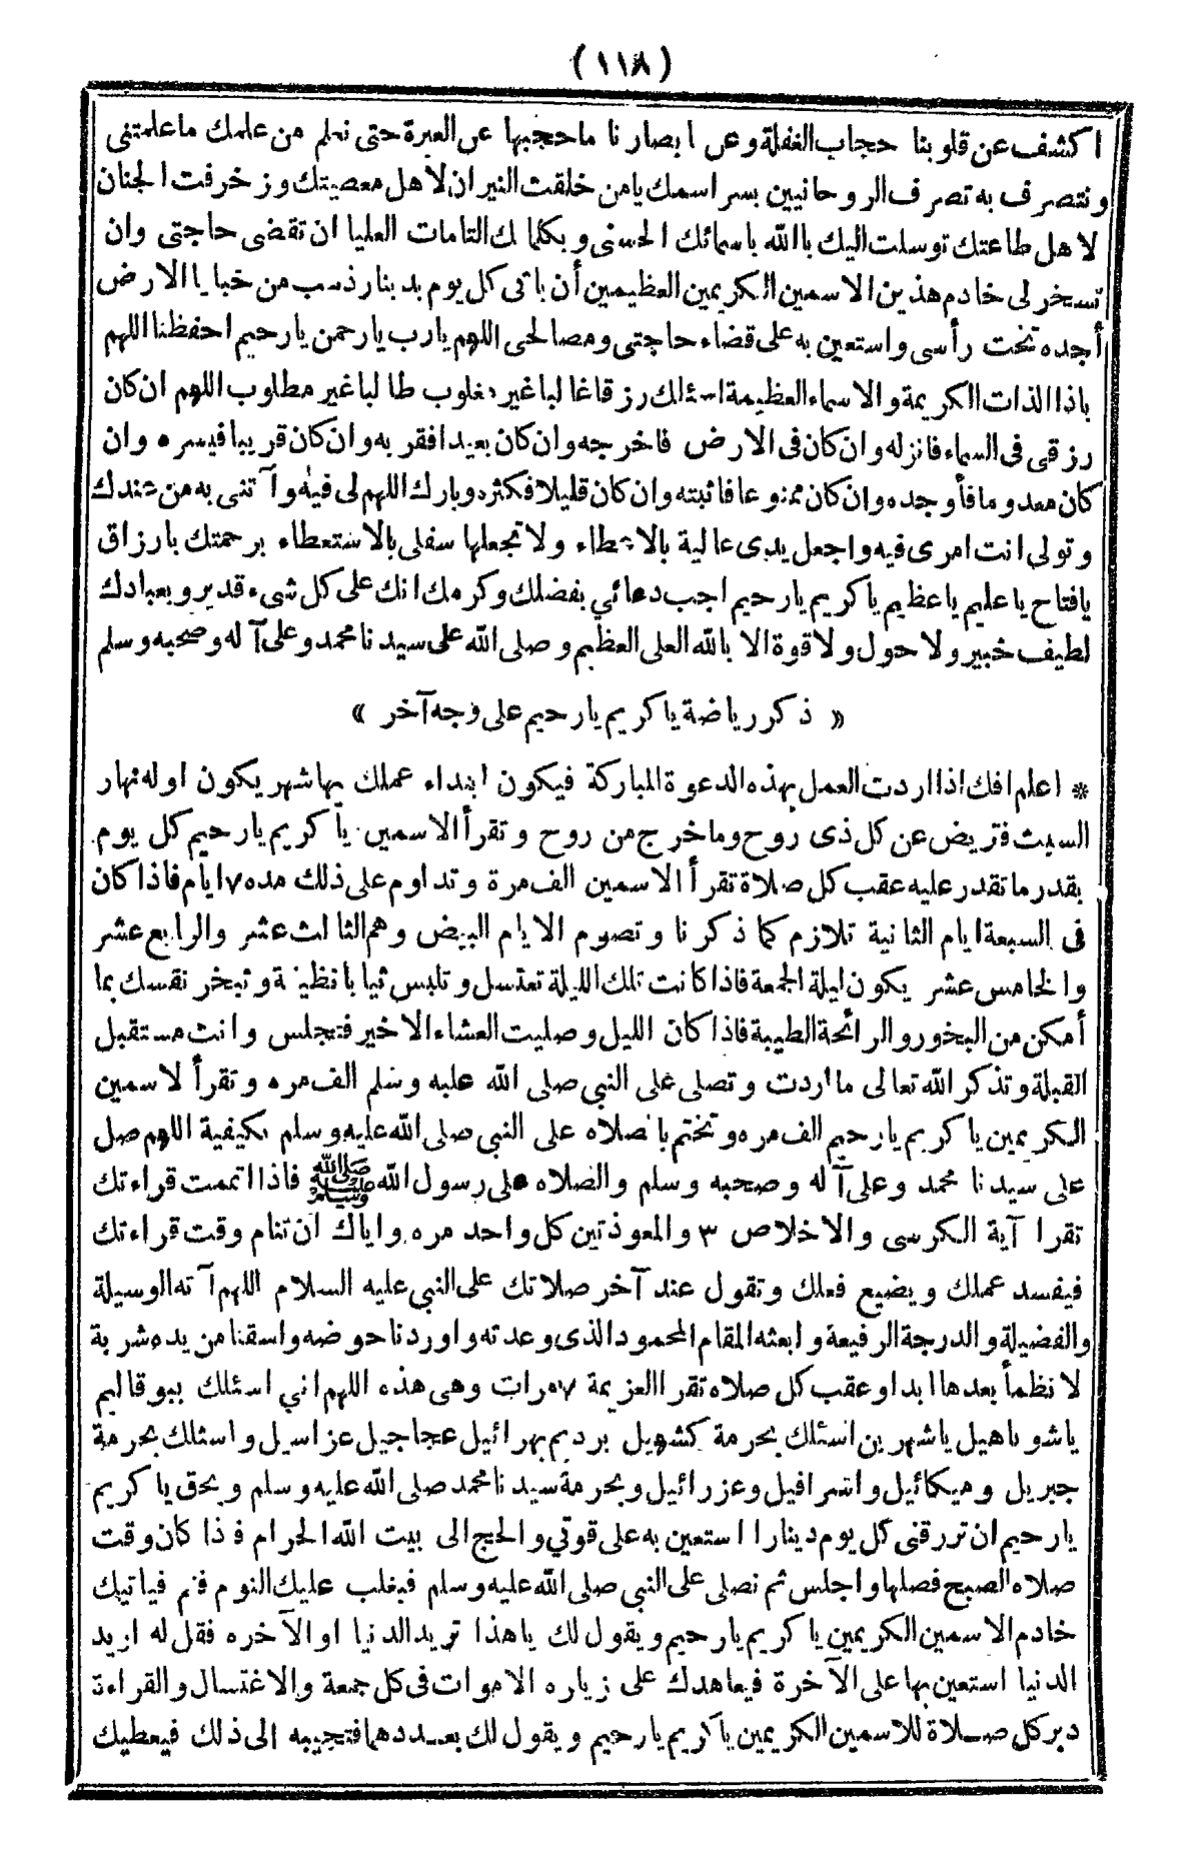 (١١٨)
اكشف عن قلوبنا حجاب الغفلة وعن ابصارنا ما حجبها عن العبرة حتى نعلم من علمك ما علمتنى
ونتصرف به تصرف الروحانيين بسر اسمك يامن خلقت النيران لاهل معصيتك وزخرفت الجنان
لاهل طاعتك توسلت اليك باالله باسمائك الحسنى وبكلماتك التامات العليا ان تقضى حاجتى وان
تسخر لى خادم هذين الاسمين الكريمين العظيمين أن يأتى كل يوم بدينار ذهب من خبايا الارض
أجده تحت رأسى واستعين به على قضاء حاجتى ومصالحى اللهم يارب يارحمن يارحيم احفظنا اللهم
ياذا الذات الكريمة والاسماء العظيمة اسئلك رزقا غالبا غير مغلوب طالبا غير مطلوب اللهم ان كان
رزقى فى السماء فانزله وان كان فى الارض فاخرجه وان كان بعيدا فقربه وان كان قريبا فيسره وان
كان معدوما فأوجده وان كان ممنوعا فاثبته وان كان قليلا فكثره وبارك اللهم لى فيه وآتنى به من عندك
وتولى انت امرى فيه واجعل يدى عالية بالاعطاء ولا تجعلها سفلى بالاستعطاء برحمتك يارزاق
يافتاح ياعليم ياعظيم ياكريم يارحيم اجب دعائي بفضلك وكرمك انك على كل شىء قدير وبعبادك
لطيف خبير ولا حول ولا قوة الا بالله العلى العظيم وصلى الله على سيدنا محمد وعلى آله وصحبه وسلم
« ذكر رياضة ياكريم يارحيم على وجه آخر »
* اعلم انك اذا اردت العمل بهذه الدعوة المباركة فيكون ابتداء عملك بها شهر يكون اوله نهار
السبت فتريض عن كل ذى روح وما خرج من روح وتقرأ الاسمين ياكريم يارحيم كل يوم
بقدر ما تقدر عليه عقب كل صلاة تقرأ الاسمين الف مرة وتداوم على ذلك مده ٧ ايام فاذا كان
فى السبعة ايام الثانية تلازم كما ذكرنا وتصوم الايام البيض وهم الثالث عشر والرابع عشر
والخامس عشر يكون ليلة الجمعة فاذا كانت تلك الليلة تغتسل وتلبس ثيابا نظيفة وتبخر نفسك بما
أمكن من البخور والرائحة الطيبة فاذا كان الليل وصليت العشاء الاخير فتجلس وانت مستقبل
القبلة وتذكر الله تعالى ما اردت وتصلى على النبي صلى الله عليه وسلم الف مره وتقرأ لاسمين
الكريمين ياكريم يارحيم الف مره وتختم بالصلاه على النبى صلى الله عليه وسلم بكيفية اللهم صل
على سيدنا محمد وعلى آله وصحبه وسلم والصلاه على رسول الله ﷺ فاذا اتممت قراءتك
تقرا آية الكرسى والاخلاص ٣ والمعوذتين كل واحد مره واياك ان تنام وقت قراءتك
فيفسد عملك ويضيع فعلك وتقول عند آخر صلاتك على النبي عليه السلام اللهم آته الوسيلة
والفضيلة والدرجة الرفيعة وابعثه المقام المحمود الذى وعدته واوردنا حوضه واسقنا من يده شربة
لا نظمأ بعدها ابدا وعقب كل صلاه تقرا العزيمة ٧ مرات وهى هذه اللهم اني اسئلك ببوقاليم
ياشو باهيل ياشهرين اسئلك بحرمة كشهيل برديم بهرائيل عجاجيل عزاسيل واسئلك بحرمة
جبريل وميكائيل واسرافيل وعزرائيل وبحرمة سيدنا محمد صلى الله عليه وسلم وبحق ياكريم
يارحيم ان ترزقنى كل يوم دينارا استعين به على قوتي والحج الى بيت الله الحرام فذا كان وقت
صلاه الصبح فصلها واجلس ثم تصلى على النبى صلى الله عليه وسلم فيغلب عليك النوم فنم فياتيك
خادم الاسمين الكريمين ياكريم يارحيم ويقول لك ياهذا تريد الدنيا او الآخره فقل له اريد
الدنيا استعين بها على الآخرة فيعاهدك على زياره الاموات فى كل جمعة والاغتسال والقراءة
دبر كل صلاة للاسمين الكريمين ياكريم يارحيم ويقول لك بعددهما فتجيبه الى ذلك فيعطيك